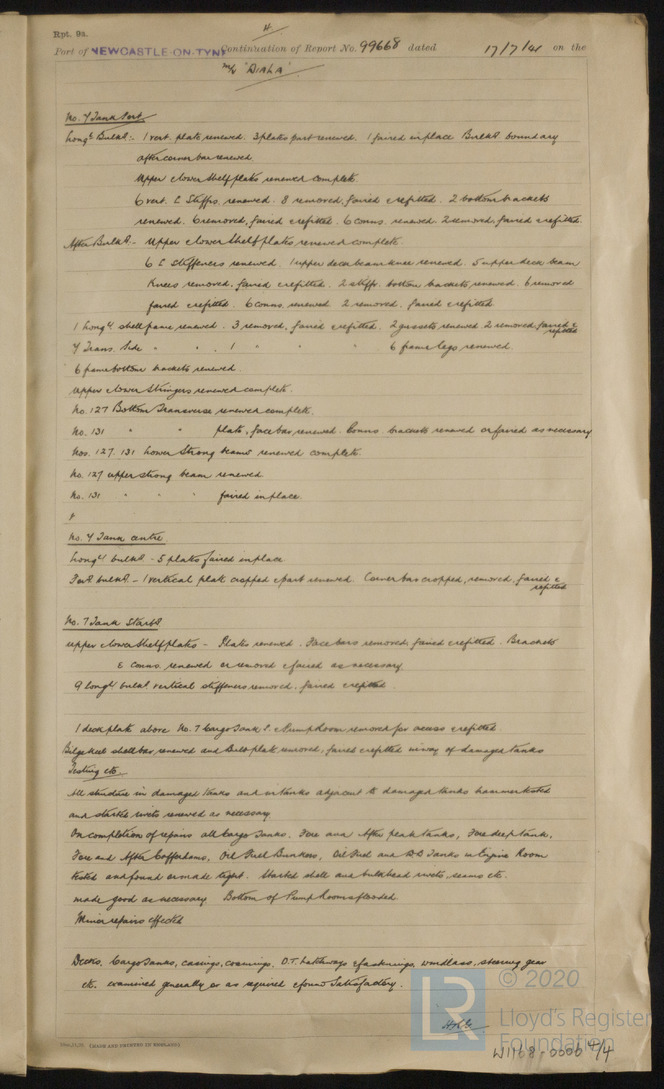 4.
Rpt. 9a.
Port of NEWCASTLE-ON-TYNE Continuation of Report No. 99668 dated 17/7/41 on the
M/V "DIALA"
No. 7 Tank Port
Longl Bulkd:- 1 vert. plate renewed. 3 plates part renewed. 1 faired in place Bulkd boundary
after corner bar renewed.
Upper & lower shelf plates renewed complete.
6 vert. L Stiffrs. renewed. 8 removed, faired & refitted. 2 bottom brackets
renewed. 6 removed, faired & refitted. 6 conns. renewed. 2 removed, faired & refitted.
After Bulkd.- Upper & lower shelf plates renewed complete.
6 L Stiffeners renewed. 1 upper deck beam knee renewed. 5 upper deck beam
knees removed, faired & refitted. 2 stiffr. bottom brackets renewed. 6 removed
faired & refitted. 6 conns. renewed 2 removed, faired & refitted.
1 Longl shell frame renewed. 3 removed, faired & refitted. 2 gussets renewed 2 removed faired &
refitted
7 Trans. Side " " . 1 " " " " 6 frame legs renewed.
6 frame bottom brackets renewed.
Upper & lower Stringers renewed complete.
No. 127 Bottom Transverse renewed complete.
No. 131 " " plate, face bar renewed. Conns. brackets renewed or faired as necessary
Nos. 127. 131 Lower Strong beams renewed complete.
No. 127 upper strong beam renewed.
No. 131 " " " faired in place.
No. 7 Tank centre
Longl bulkd - 5 plates faired in place
Ford bulkd. - 1 vertical plate cropped & part renewed. Corner bar cropped, removed, faired &
refitted
No. 7 Tank Starbd
Upper & lower shelf plates - Plates renewed. Face bars removed, faired & refitted. Brackets
& conns. renewed or removed & faired as necessary.
9 Longl bulkd vertical stiffeners removed, faired & refitted.
1 deck plate above No. 7 Cargo Tank P. & Pump Room removed for access & refitted.
Bilge keel shell bar renewed and Bulb plate removed, faired & refitted in way of damaged tanks
Testing etc.
All structure in damaged tanks and in tanks adjacent to damaged tanks hammer tested
and started rivets renewed as necessary
On completion of repairs all Cargo Tanks, Fore and After peak tanks, Fore deep tank,
Fore and After Cofferdams, Oil Fuel Bunkers, Oil Fuel and D.B Tanks in Engine Room
tested and found or made tight. Started shell and bulkhead rivets, seams etc.
made good as necessary Bottom of Pump Room flooded.
Minor repairs effected
Decks, Cargo Tanks, casings, coamings, O.T. hatchways & fastenings, windlass, steering gear
etc. examined generally or as required & found Satisfactory.
© 2020
LR
Lloyd's Register
Foundation
W1168-0000 4/4
(MADE AND PRINTED IN ENGLAND)